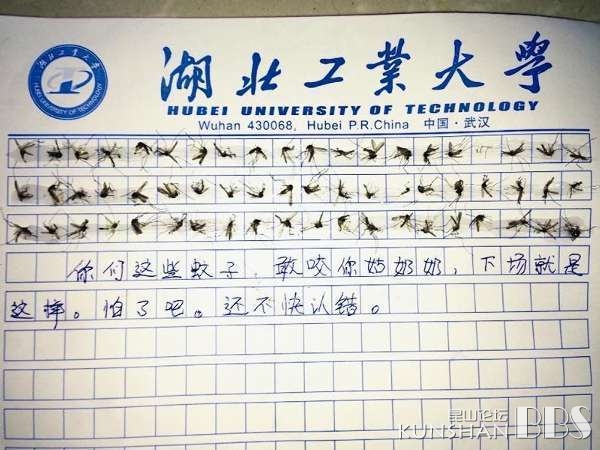 湖北工業大學
HUBEI UNIVERSITY OF TECHNOLOGY
Wuhan 430068, Hubei P.R.China 中国·武汉
湖北工業大學
HUBEI UNIVERSITY OF TECHNOLOGY
你们这些蚊子,敢咬你姑奶奶,下场就是
这样。怕了吧。还不快认错。
昆山论坛
KUNSHAN BBS